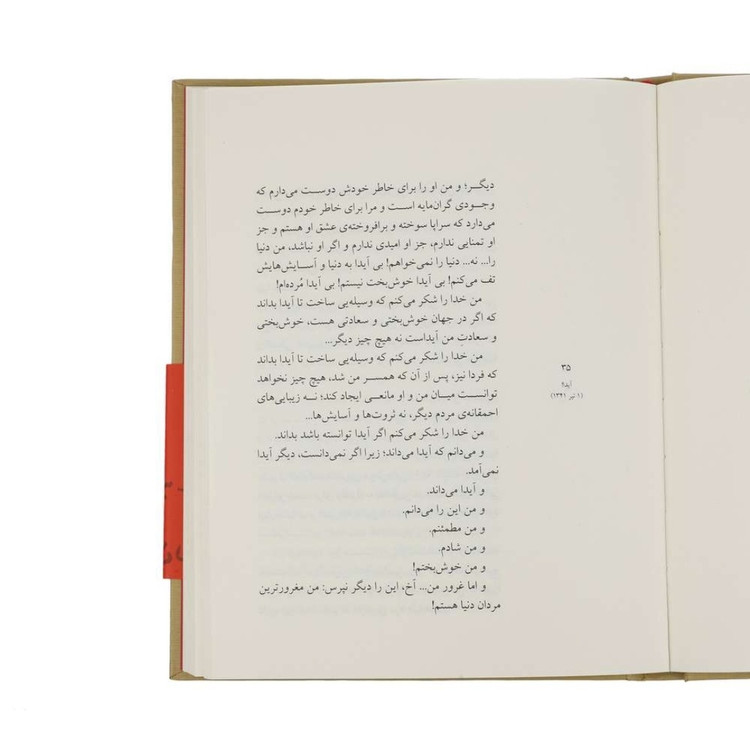 دیگـر؛ و من او را برای خاطر خودش دوست می‌دارم که
وجـودی گران‌مایه است و مرا برای خاطر خودم دوست
می‌دارد که سراپا سوخته و برافروخته‌ی عشق او هستم و جز
او تمنایی ندارم، جز او امیدی ندارم و اگر او نباشد، من دنیا
را... نه... دنیا را نمی‌خواهم! بی آیدا به دنیا و آسایش‌هایش
تف می‌کنم! بی آیدا خوش‌بخت نیستم! بی آیدا مُرده‌ام!
من خدا را شکر می‌کنم که وسیله‌یی ساخت تا آیدا بداند
که اگر در جهان خوش‌بختی و سعادتی هست، خوش‌بختی
و سعادتِ من آیداست نه هیچ چیز دیگر...
من خدا را شکر می‌کنم که وسیله‌یی ساخت تا آیدا بداند
که فردا نیز، پس از آن که همسر من شد، هیچ چیز نخواهد
توانست میان من و او مانعی ایجاد کند؛ نه زیبایی‌های
احمقانه‌ی مردم دیگر، نه ثروت‌ها و آسایش‌ها...
من خدا را شکر می‌کنم اگر آیدا توانسته باشد بداند.
و می‌دانم که آیدا می‌داند؛ زیرا اگر نمی‌دانست، دیگر آیدا
نمی‌آمد.
و آیدا می‌داند.
و من این را می‌دانم.
و من مطمئنم.
و من شادم.
و من خوش‌بختم!
و اما غرور من... آخ، این را دیگر نپرس: من مغرورترین
مردان دنیا هستم!
۳۵
آیدا!
(۱ تیر ۱۳۴۱)